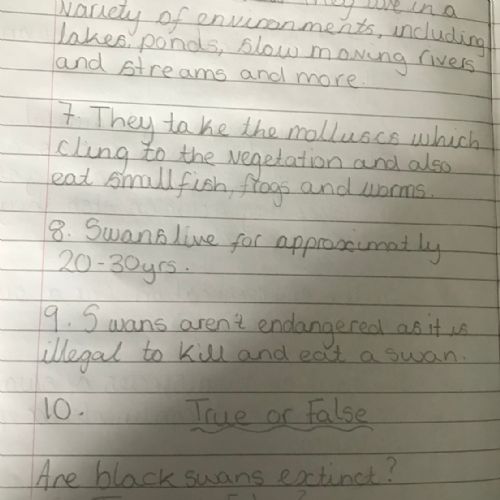 They live in a
variety of environments, including
lakes, ponds, slow moving rivers
and streams and more.
7. They take the molluscs which
cling to the vegetation and also
eat small fish, frogs and worms.
8. Swans live for approximatly
20-30yrs.
9. Swans aren't endangered as it is
illegal to kill and eat a swan.
10. True or False
Are black swans extinct?